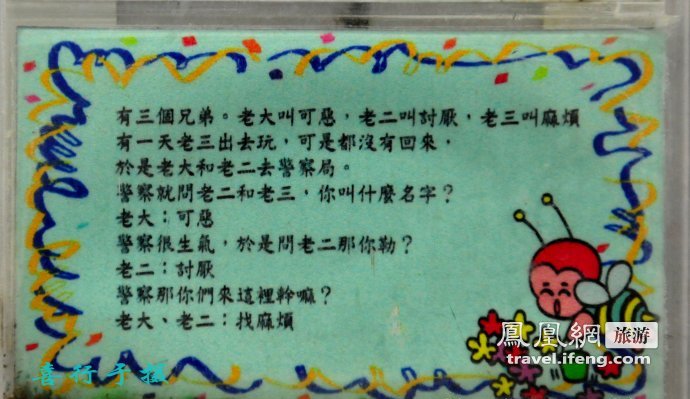 有三個兄弟。老大叫可惡，老二叫討厭，老三叫麻煩
有一天老三出去玩，可是都沒有回來，
於是老大和老二去警察局。
警察就問老二和老三，你叫什麼名字？
老大：可惡
警察很生氣，於是問老二那你勒？
老二：討厭
警察那你們來這裡幹嘛？
老大、老二：找麻煩
鳳凰網 旅游
travel.ifeng.com
喜行于摄